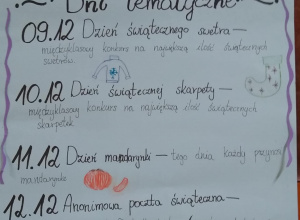 Dni tematyczne
09.12 Dzień świątecznego swetra —
międzyklasowy konkurs na największą ilość świątecznych
swetrów
10.12 Dzień świątecznej skarpety —
międzyklasowy konkurs na największą ilość świątecznych
skarpetek
11.12 Dzień mandarynki — tego dnia każdy przynosi
mandarynkę
12.12 Anonimowa poczta świąteczna —